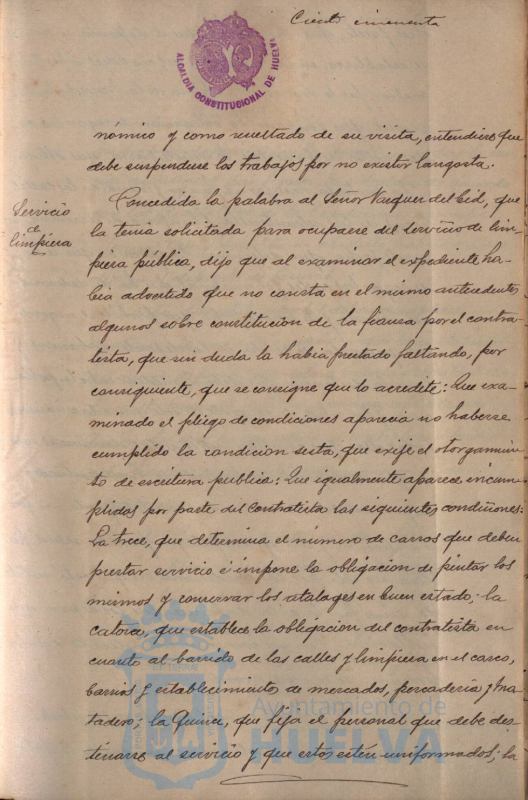 Ciento cincuenta
ALCALDIA CONSTITUCIONAL DE HUELVA
nómico y como resultado de su visita, entendiese que
debe suspenderse los trabajos por no existir langosta.
Servicio
de
limpieza
Concedida la palabra al Señor Vazquez del Cid, que
la tenia solicitada para ocuparse del servicio de lim-
pieza pública, dijo que al examinar el expediente ha-
bia advertido que no consta en el mismo antecedentes
algunos sobre constitucion de la fianza por el contra-
tista, que sin duda la habia prestado faltando, por
consiguiente, que se consigne que lo acredite: Que exa-
minado el pliego de condiciones aparecia no haberse
cumplido la condicion sesta, que exije el otorgamien-
to de escritura publica: Que igualmente aparece incum-
plidas por parte del contratista las siguientes condiciones:
La trece, que determina el número de carros que deben
prestar servicio é impone la obligacion de pintar los
mismos y conservar los atalages en buen estado; la
catorce, que establece la obligacion del contratista en
cuanto al barrido de las calles y limpieza en el casco,
barrios y establecimientos de mercados, pescaderia y ma-
tadero; la Quince, que fija el personal que debe des-
tinarse al servicio y que estos estén uniformados; la
Ayuntamiento de
HUELVA